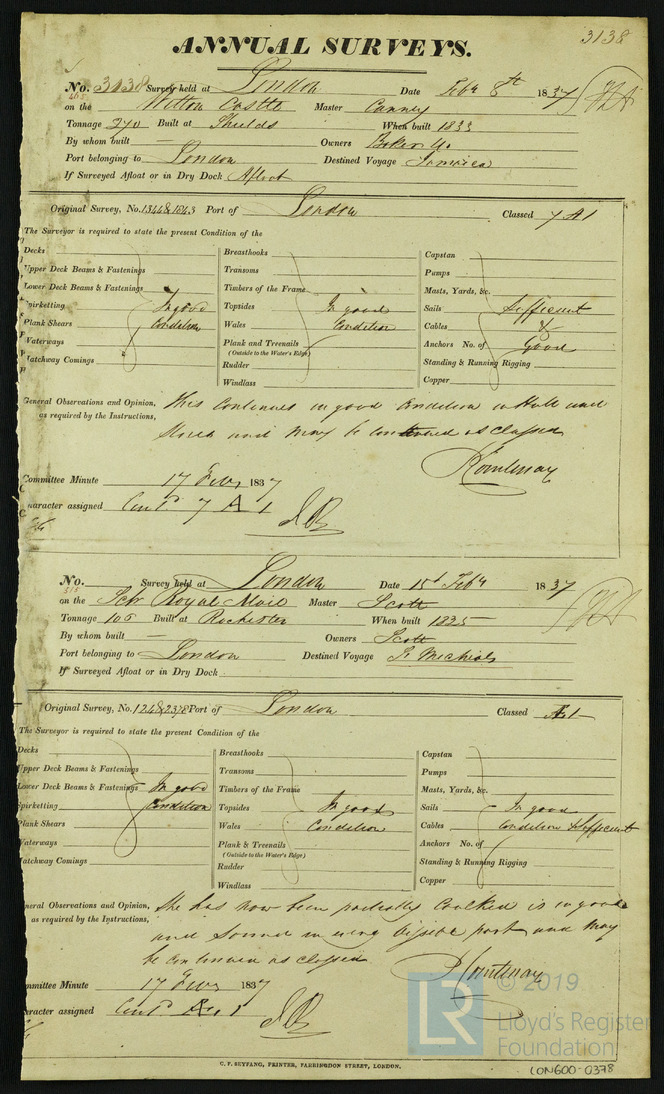 3138
ANNUAL SURVEYS.
No. 3138 Survey held at London Date Feby 8th 1837
on the Wilton Castle Master Canney
Tonnage 270 Built at Shields When built 1833
By whom built — Owners Baker &
Port belonging to London Destined Voyage Jamaica
If Surveyed Afloat or in Dry Dock Afloat
Original Survey, No. 1344 & 1843 Port of London Classed 7 A1
The Surveyor is required to state the present Condition of the
Decks
Upper Deck Beams & Fastenings
Lower Deck Beams & Fastenings
Spirketting In good
Plank Shears Condition
Waterways
Hatchway Comings
Breasthooks
Transoms
Timbers of the Frame
Topsides In good
Wales Condition
Plank and Treenails
(Outside to the Water's Edge)
Rudder
Windlass
Capstan
Pumps
Masts, Yards, &c.
Sails Sufficient
Cables &
Anchors No. of Good
Standing & Running Rigging
Copper
General Observations and Opinion, This Continues in good Condition in Hull and
as required by the Instructions, Stores and may be continued as classed
Committee Minute 17 Feby 1837
Character assigned Cont 7 A 1
No. Survey held at London Date 15th Feby 1837
315 on the Schr Royal Mail Master Scott
Tonnage 106 Built at Rochester When built 1825
By whom built — Owners Scott
Port belonging to London Destined Voyage St Micheals
If Surveyed Afloat or in Dry Dock
Original Survey, No. 1248 & 2378 Port of London Classed A1
The Surveyor is required to state the present Condition of the
Decks
Upper Deck Beams & Fastenings
Lower Deck Beams & Fastenings In good
Spirketting Condition
Plank Shears
Waterways
Hatchway Comings
Breasthooks
Transoms
Timbers of the Frame
Topsides In good
Wales Condition
Plank & Treenails
(Outside to the Water's Edge)
Rudder
Windlass
Capstan
Pumps
Masts, Yards, &c.
Sails In good
Cables Condition & Sufficient
Anchors No. of
Standing & Running Rigging
Copper
General Observations and Opinion, She has now been partially Caulked is in good
as required by the Instructions, and Sound in every visible part and may
be continued as classed
Committee Minute 17 Feby 1837
Character assigned Cont A 1
LR © 2019
Lloyd's Register
Foundation
C. F. SEYFANG, PRINTER, FARRINGDON STREET, LONDON.
LON600-0378